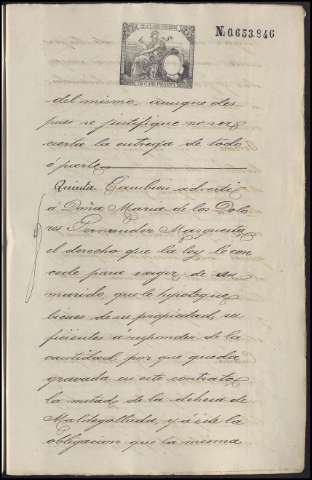 N. 0.653.846
del mismo, aunque des
pues se justifique no ser
cierta la entrega de todo
ó parte
Quinta Tambien advertí
á Doña Maria de los Dolo
res Fernandez Marquesta
el derecho que la ley le con
cede para exigir de su
marido, que le hipoteque
bienes de su propiedad, su
ficientes a responder de la
cantidad, por que queda
gravada en este contrato
la mitad de la dehesa de
Maldegollada, y á de la
obligacion que la misma